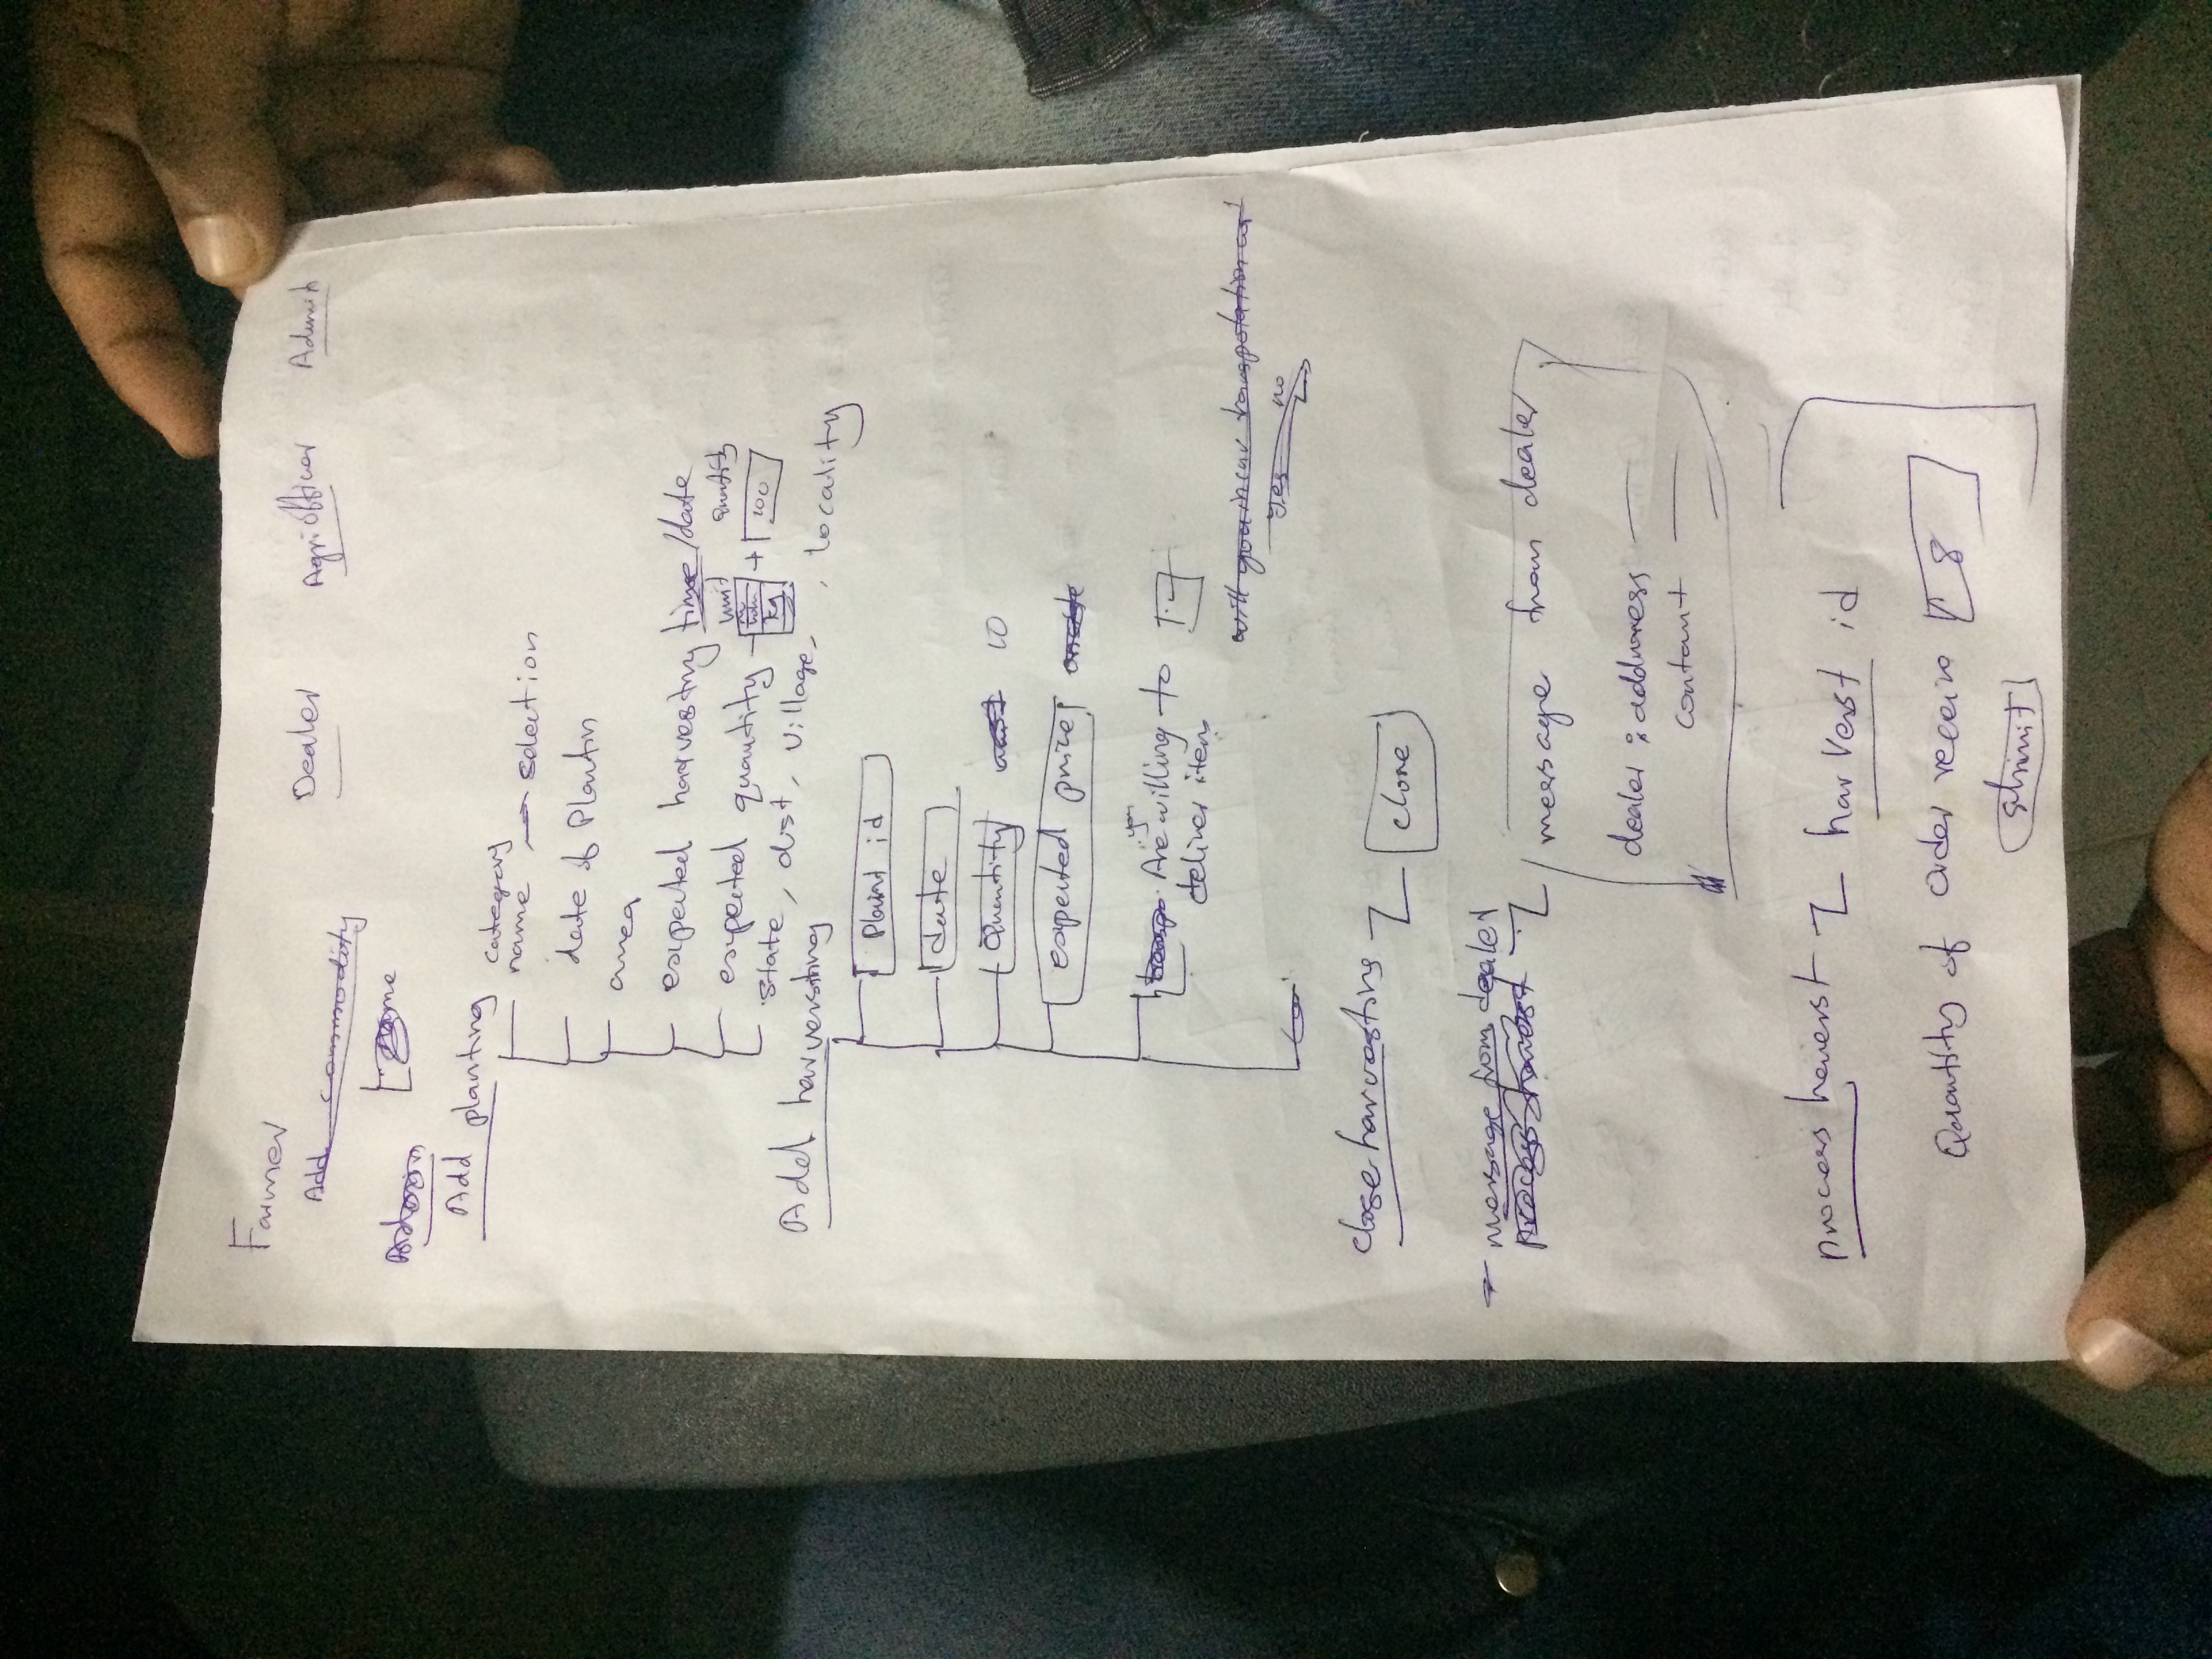 Farmer
Dealer
Agriofficer
Admin
Add commodity
name
Add planting
category
name → selection
date of Plantin
area
expected harvesting time/date
unit quantity
expected quantity kg + 100
state, dist, village, , locality
Add harversting
Plant id
date
Quantity 10
expected price
you
Are willing to
deliver item
will you incur transpotation cost
yes no
close harvesting
close
→ message from dealer
process harvest
message from dealer
dealer : address
contant
process harverst
harverst id
Quantity of order receive 8
submit